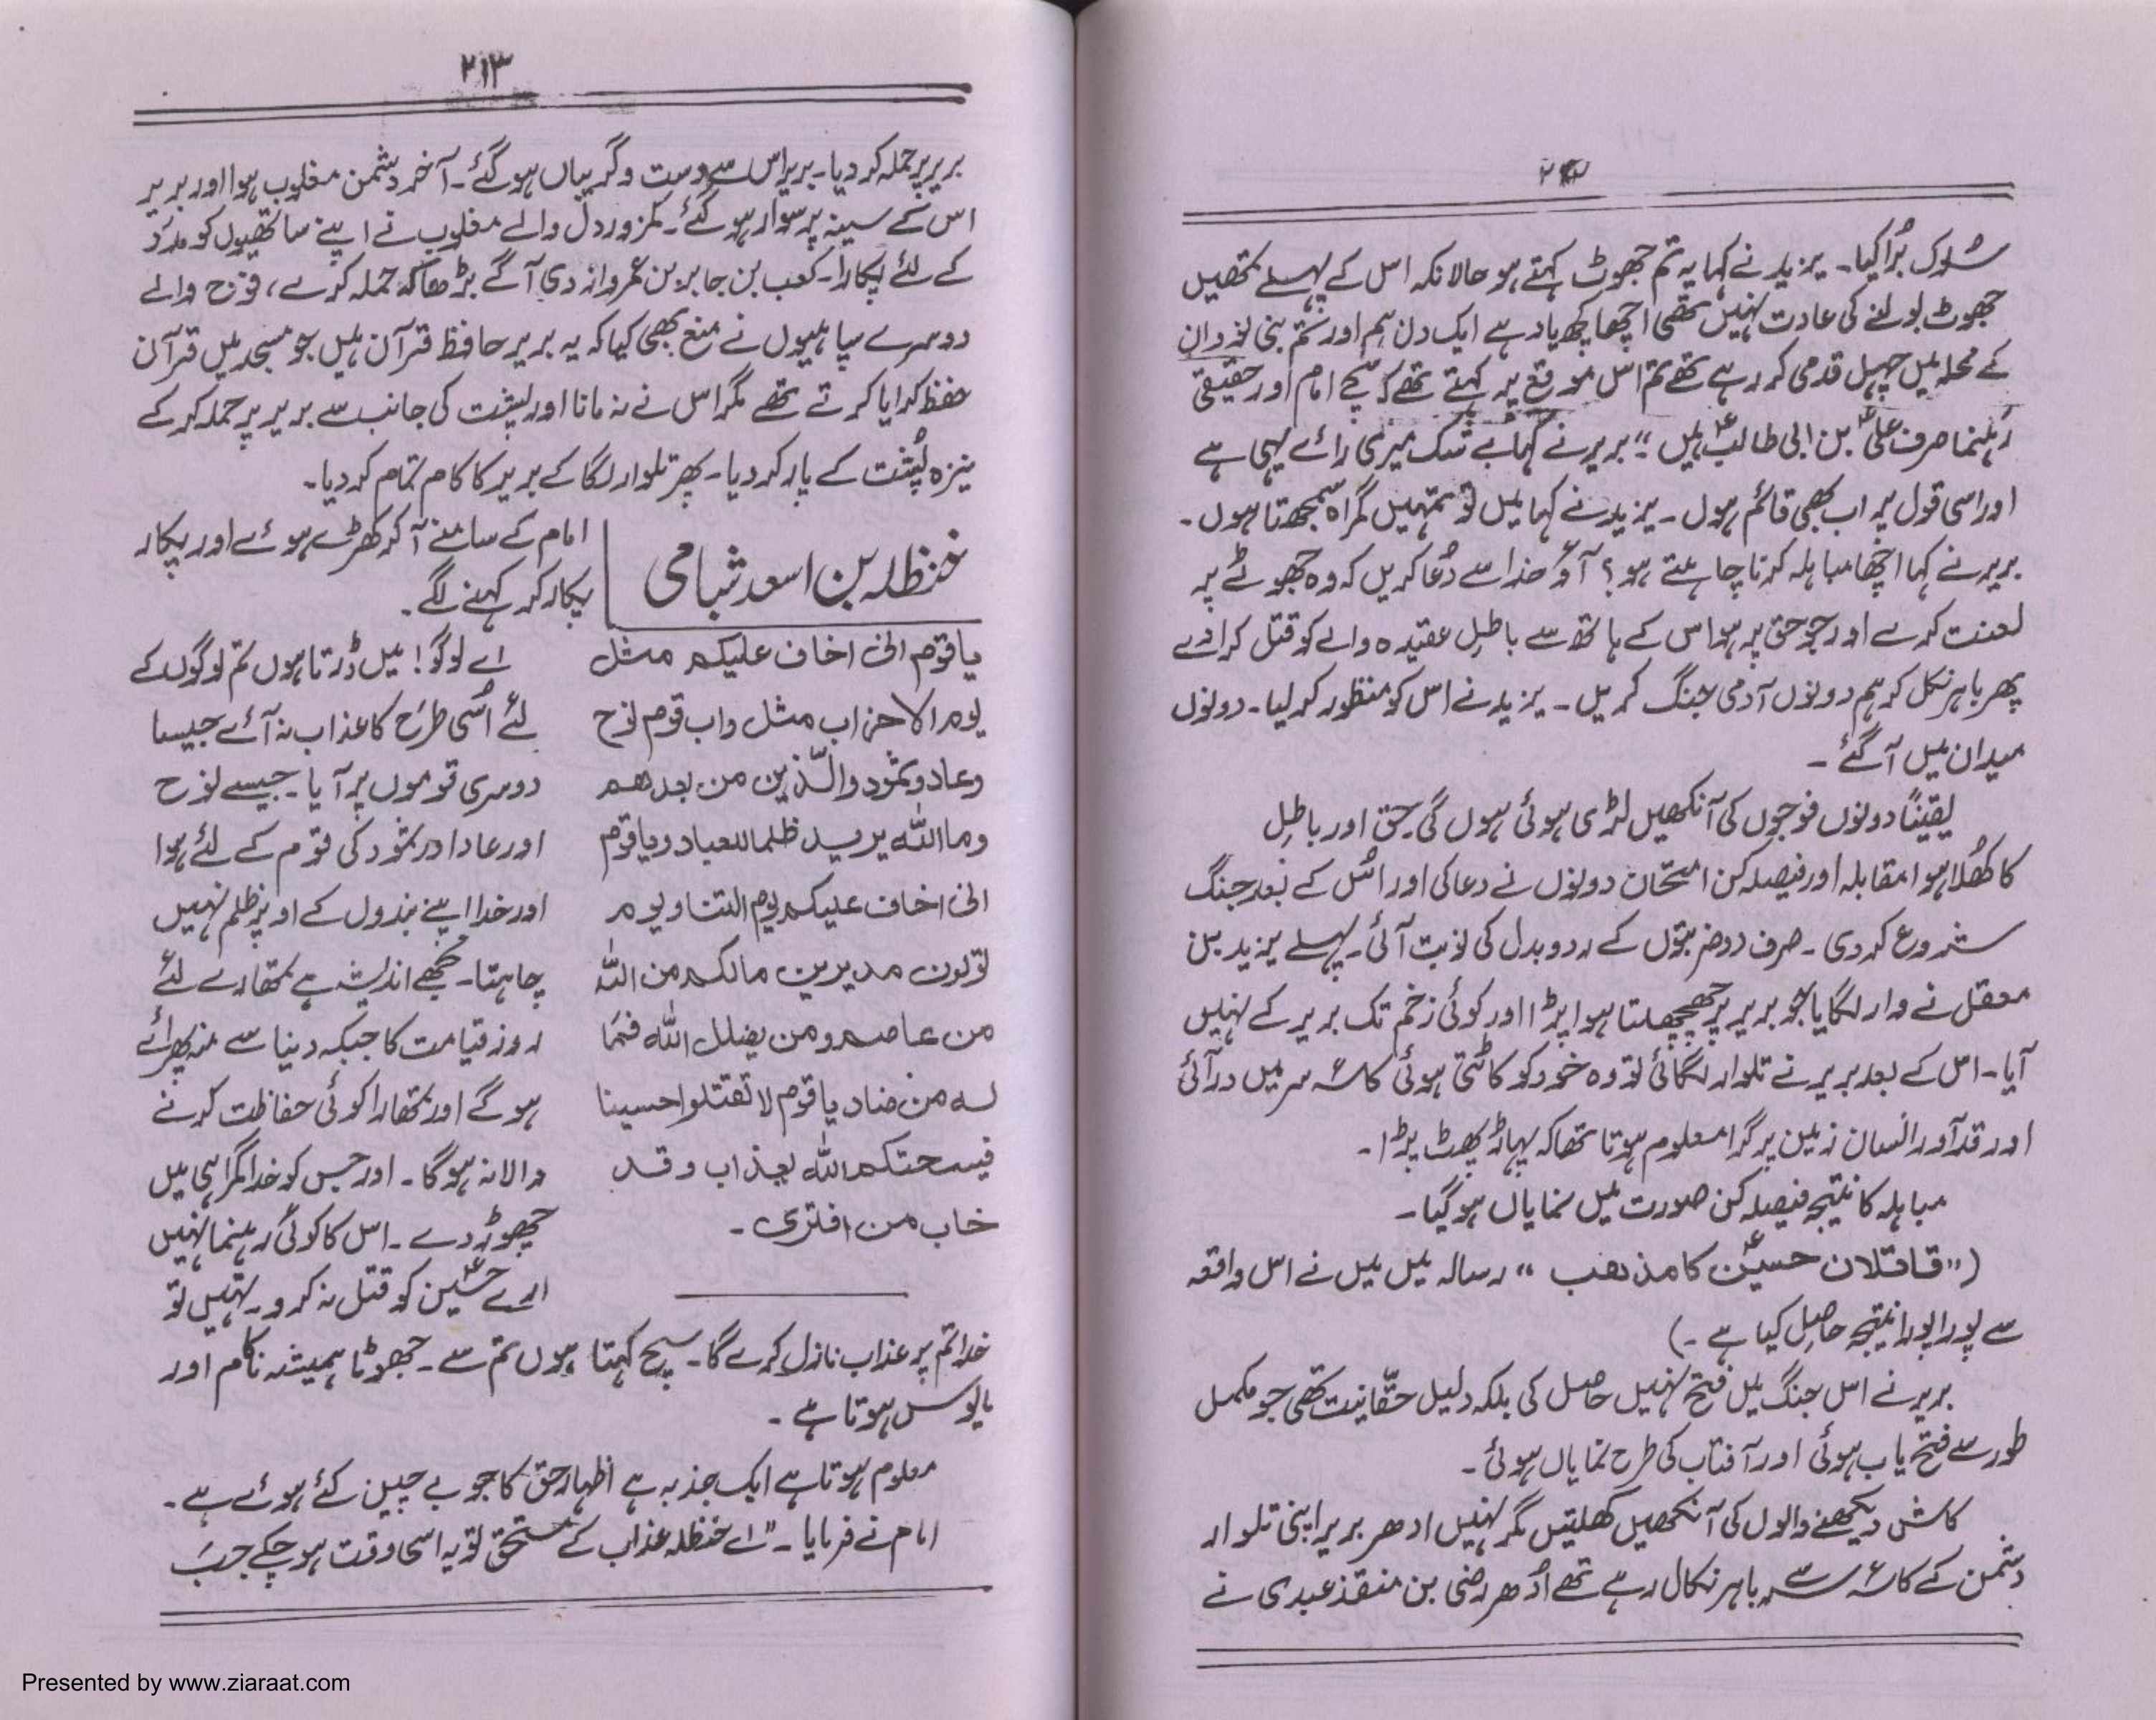 سُلوک بُرا کیا۔ یزید نے کہا یہ تم جھوٹ کہتے ہو حالانکہ اس کے پہلے تمھیں
جھوٹ بولنے کی عادت نہیں تھی اچھا کچھ یاد ہے ایک دن ہم اور تم بنی لوذان
کے محلہ میں چہل قدمی کر رہے تھے تم اس موقع پر کہتے تھے کہ سچے امام اور حقیقی
رہنما صرف علیؑ بن ابی طالبؑ ہیں“ بریر نے کہا بے شک میری رائے یہی ہے
اور اسی قول پر اب بھی قائم ہوں۔ یزید نے کہا میں تو تمہیں گمراہ سمجھتا ہوں۔
بریر نے کہا اچھا مباہلہ کرنا چاہتے ہو؟ آؤ خدا سے دُعا کریں کہ وہ جھوٹے پر
لعنت کرے اور جو حق پر ہو اس کے ہاتھ سے باطل عقیدہ والے کو قتل کرا دے
پھر باہر نکل کر ہم دونوں آدمی جنگ کریں۔ یزید نے اس کو منظور کر لیا۔ دونوں
میدان میں آ گئے۔
یقیناً دونوں فوجوں کی آنکھیں لڑی ہوئی ہوں گی حق اور باطِل
کا کھُلا ہوا مقابلہ اور فیصلہ کن امتحان دونوں نے دعا کی اور اس کے بعد جنگ
شروع کر دی۔ صرف دو ضربتوں کے رد و بدل کی نوبت آئی۔ پہلے یزید بن
معقل نے وار لگایا جو بریر پر چھچھلتا ہوا پڑا اور کوئی زخم تک بریر کے نہیں
آیا۔ اس کے بعد بریر نے تلوار لگائی تو وہ خود کو کاٹتی ہوئی کاسۂ سر میں در آئی
اور قد آور انسان زمین پر گرا معلوم ہوتا تھا کہ پہاڑ پھٹ پڑا۔
مباہلہ کا نتیجہ فیصلہ کن صورت میں نمایاں ہو گیا۔
(”قاتلان حسینؑ کا مذہب“ رسالہ میں میں نے اس واقعہ
سے پورا پورا نتیجہ حاصِل کیا ہے۔)
بریر نے اس جنگ میں فتح نہیں حاصل کی بلکہ دلیل حقّانیت تھی جو مکمل
طور سے فتح یاب ہوئی اور آفتاب کی طرح نمایاں ہوئی۔
کاش دیکھنے والوں کی آنکھیں کھلتیں مگر نہیں ادھر بریر اپنی تلوار
دشمن کے کاسۂ سر سے باہر نکال رہے تھے اُدھر رضی بن منقذ عبدی نے
۲۱۳
بریر پر حملہ کر دیا۔ بریر اس سے دست و گریباں ہو گئے۔ آخر دشمن مغلوب ہوا اور بریر
اس کے سینہ پر سوار ہو گئے۔ کمزور دل والے مغلوب نے اپنے ساتھیوں کو مدد
کے لئے پکارا۔ کعب بن جابر بن عمرو ازدی آگے بڑھا کہ حملہ کرے، فوج والے
دوسرے سپاہیوں نے منع بھی کیا کہ یہ بریر حافظ قرآن ہیں جو مسجد میں قرآن
حفظ کرایا کرتے تھے مگر اس نے نہ مانا اور پشت کی جانب سے بریر پر حملہ کر کے
نیزہ پُشت کے پار کر دیا۔ پھر تلوار لگا کے بریر کا کام تمام کر دیا۔
حنظلہ بن اسعد شبامی
امام کے سامنے آ کر کھڑے ہوئے اور پکار
پکار کر کہنے لگے۔
یا قوم انی اخاف علیکم مثل
یوم الاحزاب مثل داب قوم نوح
وعاد وثمود والّذین من بعدھم
وما اللہ یرید ظلما للعباد ویا قوم
انی اخاف علیکم یوم التناد یوم
تولون مدبرین مالکم من اللہ
من عاصم ومن یضلل اللہ فما
لہ من ھاد یا قوم لا تقتلوا حسینا
فیسحتکم اللہ بعذاب وقد
خاب من افتری۔
اے لوگو! میں ڈرتا ہوں تم لوگوں کے
لئے اُسی طرح کا عذاب نہ آئے جیسا
دوسری قوموں پر آیا۔ جیسے نوح
اور عاد اور ثمود کی قوم کے لئے ہوا
اور خدا اپنے بندوں کے اوپر ظلم نہیں
چاہتا۔ مجھے اندیشہ ہے تمھارے لئے
روز قیامت کا جبکہ دنیا سے منہ پھرائے
ہو گے اور تمھارا کوئی حفاظت کرنے
والا نہ ہوگا۔ اور جس کو خدا گمراہی میں
چھوڑ دے۔ اس کا کوئی رہنما نہیں
ارے حسینؑ کو قتل نہ کرو۔ نہیں تو
خدا تم پر عذاب نازل کرے گا۔ سچ کہتا ہوں تم سے۔ جھوٹا ہمیشہ ناکام اور
مایوس ہوتا ہے۔
معلوم ہوتا ہے ایک جذبہ ہے اظہار حق کا جو بے چین کئے ہوئے ہے۔
امام نے فرمایا۔ ”اے حنظلہ عذاب کے مستحق تو یہ اسی وقت ہو چکے جب
Presented by www.ziaraat.com